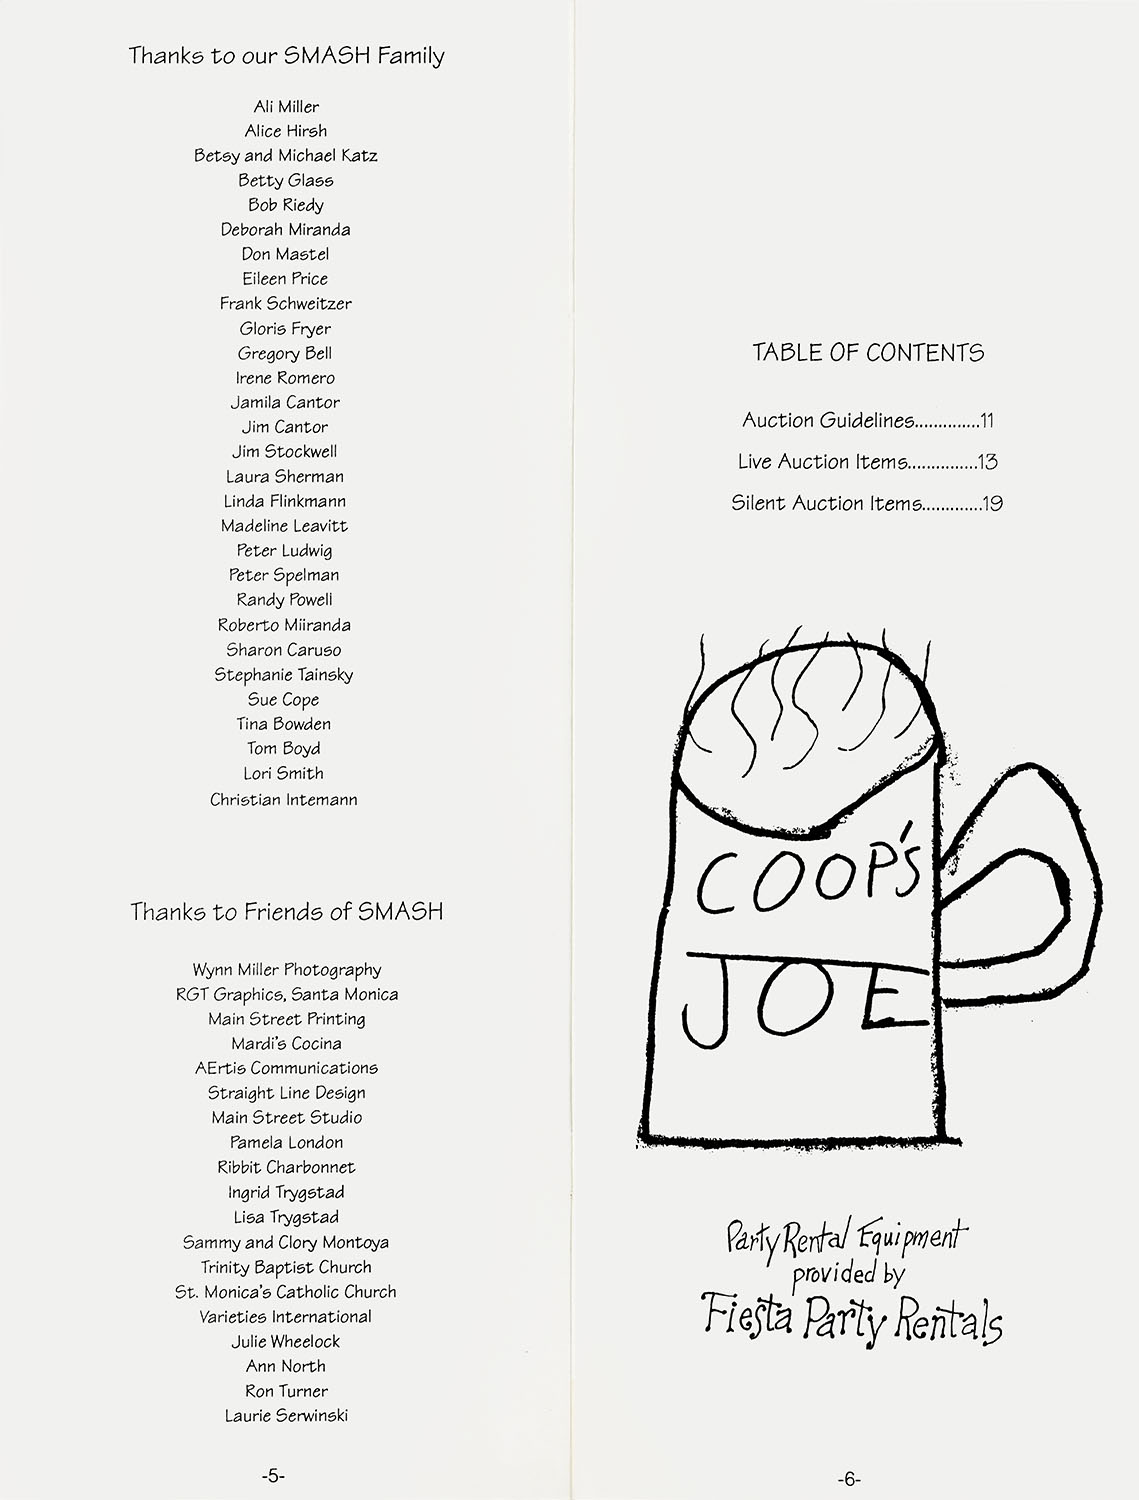 Thanks to our SMASH Family
Ali Miller
Alice Hirsh
Betsy and Michael Katz
Betty Glass
Bob Riedy
Deborah Miranda
Don Mastel
Eileen Price
Frank Schweitzer
Gloris Fryer
Gregory Bell
Irene Romero
Jamila Cantor
Jim Cantor
Jim Stockwell
Laura Sherman
Linda Flinkmann
Madeline Leavitt
Peter Ludwig
Peter Spelman
Randy Powell
Roberto Miiranda
Sharon Caruso
Stephanie Tainsky
Sue Cope
Tina Bowden
Tom Boyd
Lori Smith
Christian Intemann
Thanks to Friends of SMASH
Wynn Miller Photography
RGT Graphics, Santa Monica
Main Street Printing
Mardi's Cocina
AErtis Communications
Straight Line Design
Main Street Studio
Pamela London
Ribbit Charbonnet
Ingrid Trygstad
Lisa Trygstad
Sammy and Clory Montoya
Trinity Baptist Church
St. Monica's Catholic Church
Varieties International
Julie Wheelock
Ann North
Ron Turner
Laurie Serwinski
-5-
TABLE OF CONTENTS
Auction Guidelines..............11
Live Auction Items...............13
Silent Auction Items.............19
COOP'S
JOE
Party Rental Equipment
provided by
Fiesta Party Rentals
-6-